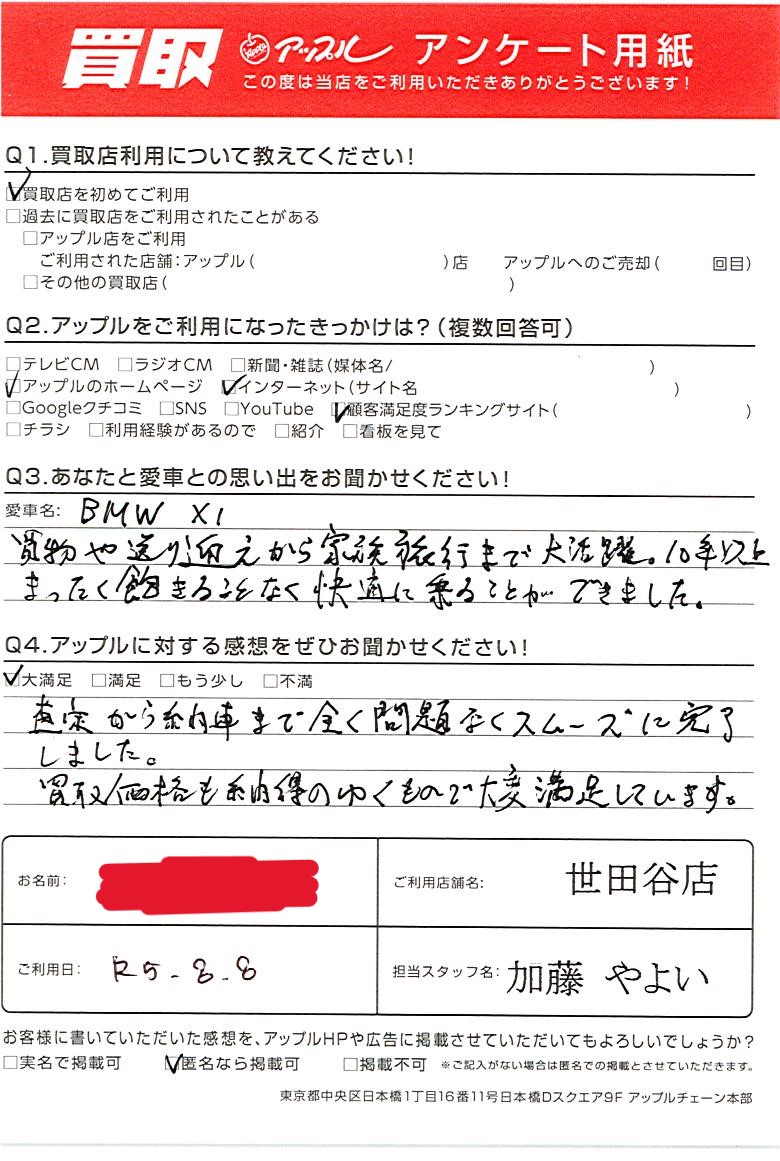 買取 アップル アンケート用紙
この度は当店をご利用いただきありがとうございます!
Q1.買取店利用について教えてください!
☑買取店を初めてご利用
□過去に買取店をご利用されたことがある
□アップル店をご利用
ご利用された店舗:アップル( )店 アップルへのご売却( 回目)
□その他の買取店( )
Q2.アップルをご利用になったきっかけは?(複数回答可)
□テレビCM □ラジオCM □新聞・雑誌(媒体名/ )
☑アップルのホームページ ☑インターネット(サイト名 )
□Googleクチコミ □SNS □YouTube ☑顧客満足度ランキングサイト( )
□チラシ □利用経験があるので □紹介 □看板を見て
Q3.あなたと愛車との思い出をお聞かせください!
愛車名: BMW X1
買物や送り迎えから家族旅行まで大活躍。10年以上
まったく飽きることなく快適に乗ることができました。
Q4.アップルに対する感想をぜひお聞かせください!
☑大満足 □満足 □もう少し □不満
査定から納車まで全く問題なくスムーズに完了
しました。
買取価格も納得のゆくもので大変満足しています。
お名前:
ご利用店舗名: 世田谷店
ご利用日: R5-8-8
担当スタッフ名: 加藤 やよい
お客様に書いていただいた感想を、アップルHPや広告に掲載させていただいてもよろしいでしょうか?
□実名で掲載可 ☑匿名なら掲載可 □掲載不可 ※ご記入がない場合は匿名での掲載とさせていただきます。
東京都中央区日本橋1丁目16番11号日本橋Dスクエア9F アップルチェーン本部